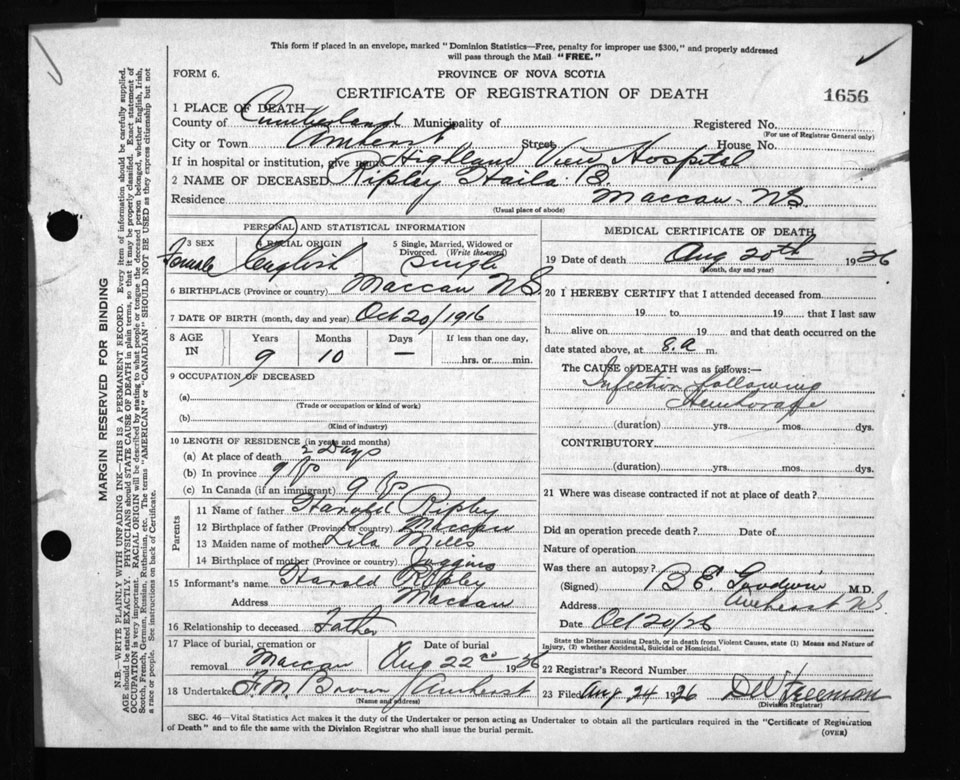 This form if placed in an envelope, marked "Dominion Statistics—Free, penalty for improper use $300," and properly addressed
will pass through the Mail "FREE."
FORM 6.
PROVINCE OF NOVA SCOTIA
CERTIFICATE OF REGISTRATION OF DEATH
1656
1 PLACE OF DEATH
County of Cumberland Municipality of Registered No.
(For use of Registrar General only)
City or Town Amherst Street House No.
If in hospital or institution, give name Highland View Hospital
2 NAME OF DECEASED Ripley Haila B.
Residence Maccan N.S.
(Usual place of abode)
PERSONAL AND STATISTICAL INFORMATION
3 SEX 4 RACIAL ORIGIN 5 Single, Married, Widowed or Divorced. (Write the word)
Female English Single
6 BIRTHPLACE (Province or country) Maccan N.S.
7 DATE OF BIRTH (month, day and year) Oct 20/1916
8 AGE IN Years Months Days If less than one day,
9 10 — hrs. or min.
9 OCCUPATION OF DECEASED
(a)
(Trade or occupation or kind of work)
(b)
(Kind of industry)
10 LENGTH OF RESIDENCE (in years and months)
(a) At place of death 2 Days
(b) In province 9
(c) In Canada (if an immigrant) 9
Parents
11 Name of father Harold Ripley
12 Birthplace of father (Province or country) Maccan
13 Maiden name of mother Lila Mills
14 Birthplace of mother (Province or country) Joggins
15 Informant's name Harold Ripley
Address Maccan
16 Relationship to deceased Father
17 Place of burial, cremation or removal Maccan Date of burial Aug 22nd 1926
18 Undertaker F. M. Brown Amherst
(Name and address)
MEDICAL CERTIFICATE OF DEATH
19 Date of death Aug 20th 1926
(Month, day and year)
20 I HEREBY CERTIFY that I attended deceased from
19 to 19 that I last saw
h alive on 19 and that death occurred on
date stated above, at 8.a m.
The CAUSE of DEATH was as follows:—
Infection following
Hemhorage
(duration) yrs. mos. dys.
CONTRIBUTORY
(duration) yrs. mos. dys.
21 Where was disease contracted if not at place of death?
Did an operation precede death? Date of
Nature of operation
Was there an autopsy?
(Signed) B E Goodwin M.D.
Address Amherst N.S.
Date Oct 20/26
State the Disease causing Death, or in death from Violent Causes, state (1) Means and Nature of Injury, (2) whether Accidental, Suicidal or Homicidal.
22 Registrar's Record Number
23 Filed Aug 24 1926 Freeman
(Division Registrar)
SEC. 46—Vital Statistics Act makes it the duty of the Undertaker or person acting as Undertaker to obtain all the particulars required in the "Certificate of Registration
of Death" and to file the same with the Division Registrar who shall issue the burial permit.
(OVER)
MARGIN RESERVED FOR BINDING
N.B.—WRITE PLAINLY WITH UNFADING INK—THIS IS A PERMANENT RECORD. Every item of information should be carefully supplied.
AGE should be stated EXACTLY. PHYSICIANS should STATE CAUSE OF DEATH in plain terms, so that it may be properly classified. Exact statement of
OCCUPATION is very important. RACIAL ORIGIN will be described by stating to what people or tongue the deceased person belonged, whether English, Irish,
Scotch, French, German, Russian, Ruthenian, etc. The terms "AMERICAN" or "CANADIAN" SHOULD NOT BE USED as they express citizenship but not
a race or people. See instructions on back of Certificate.